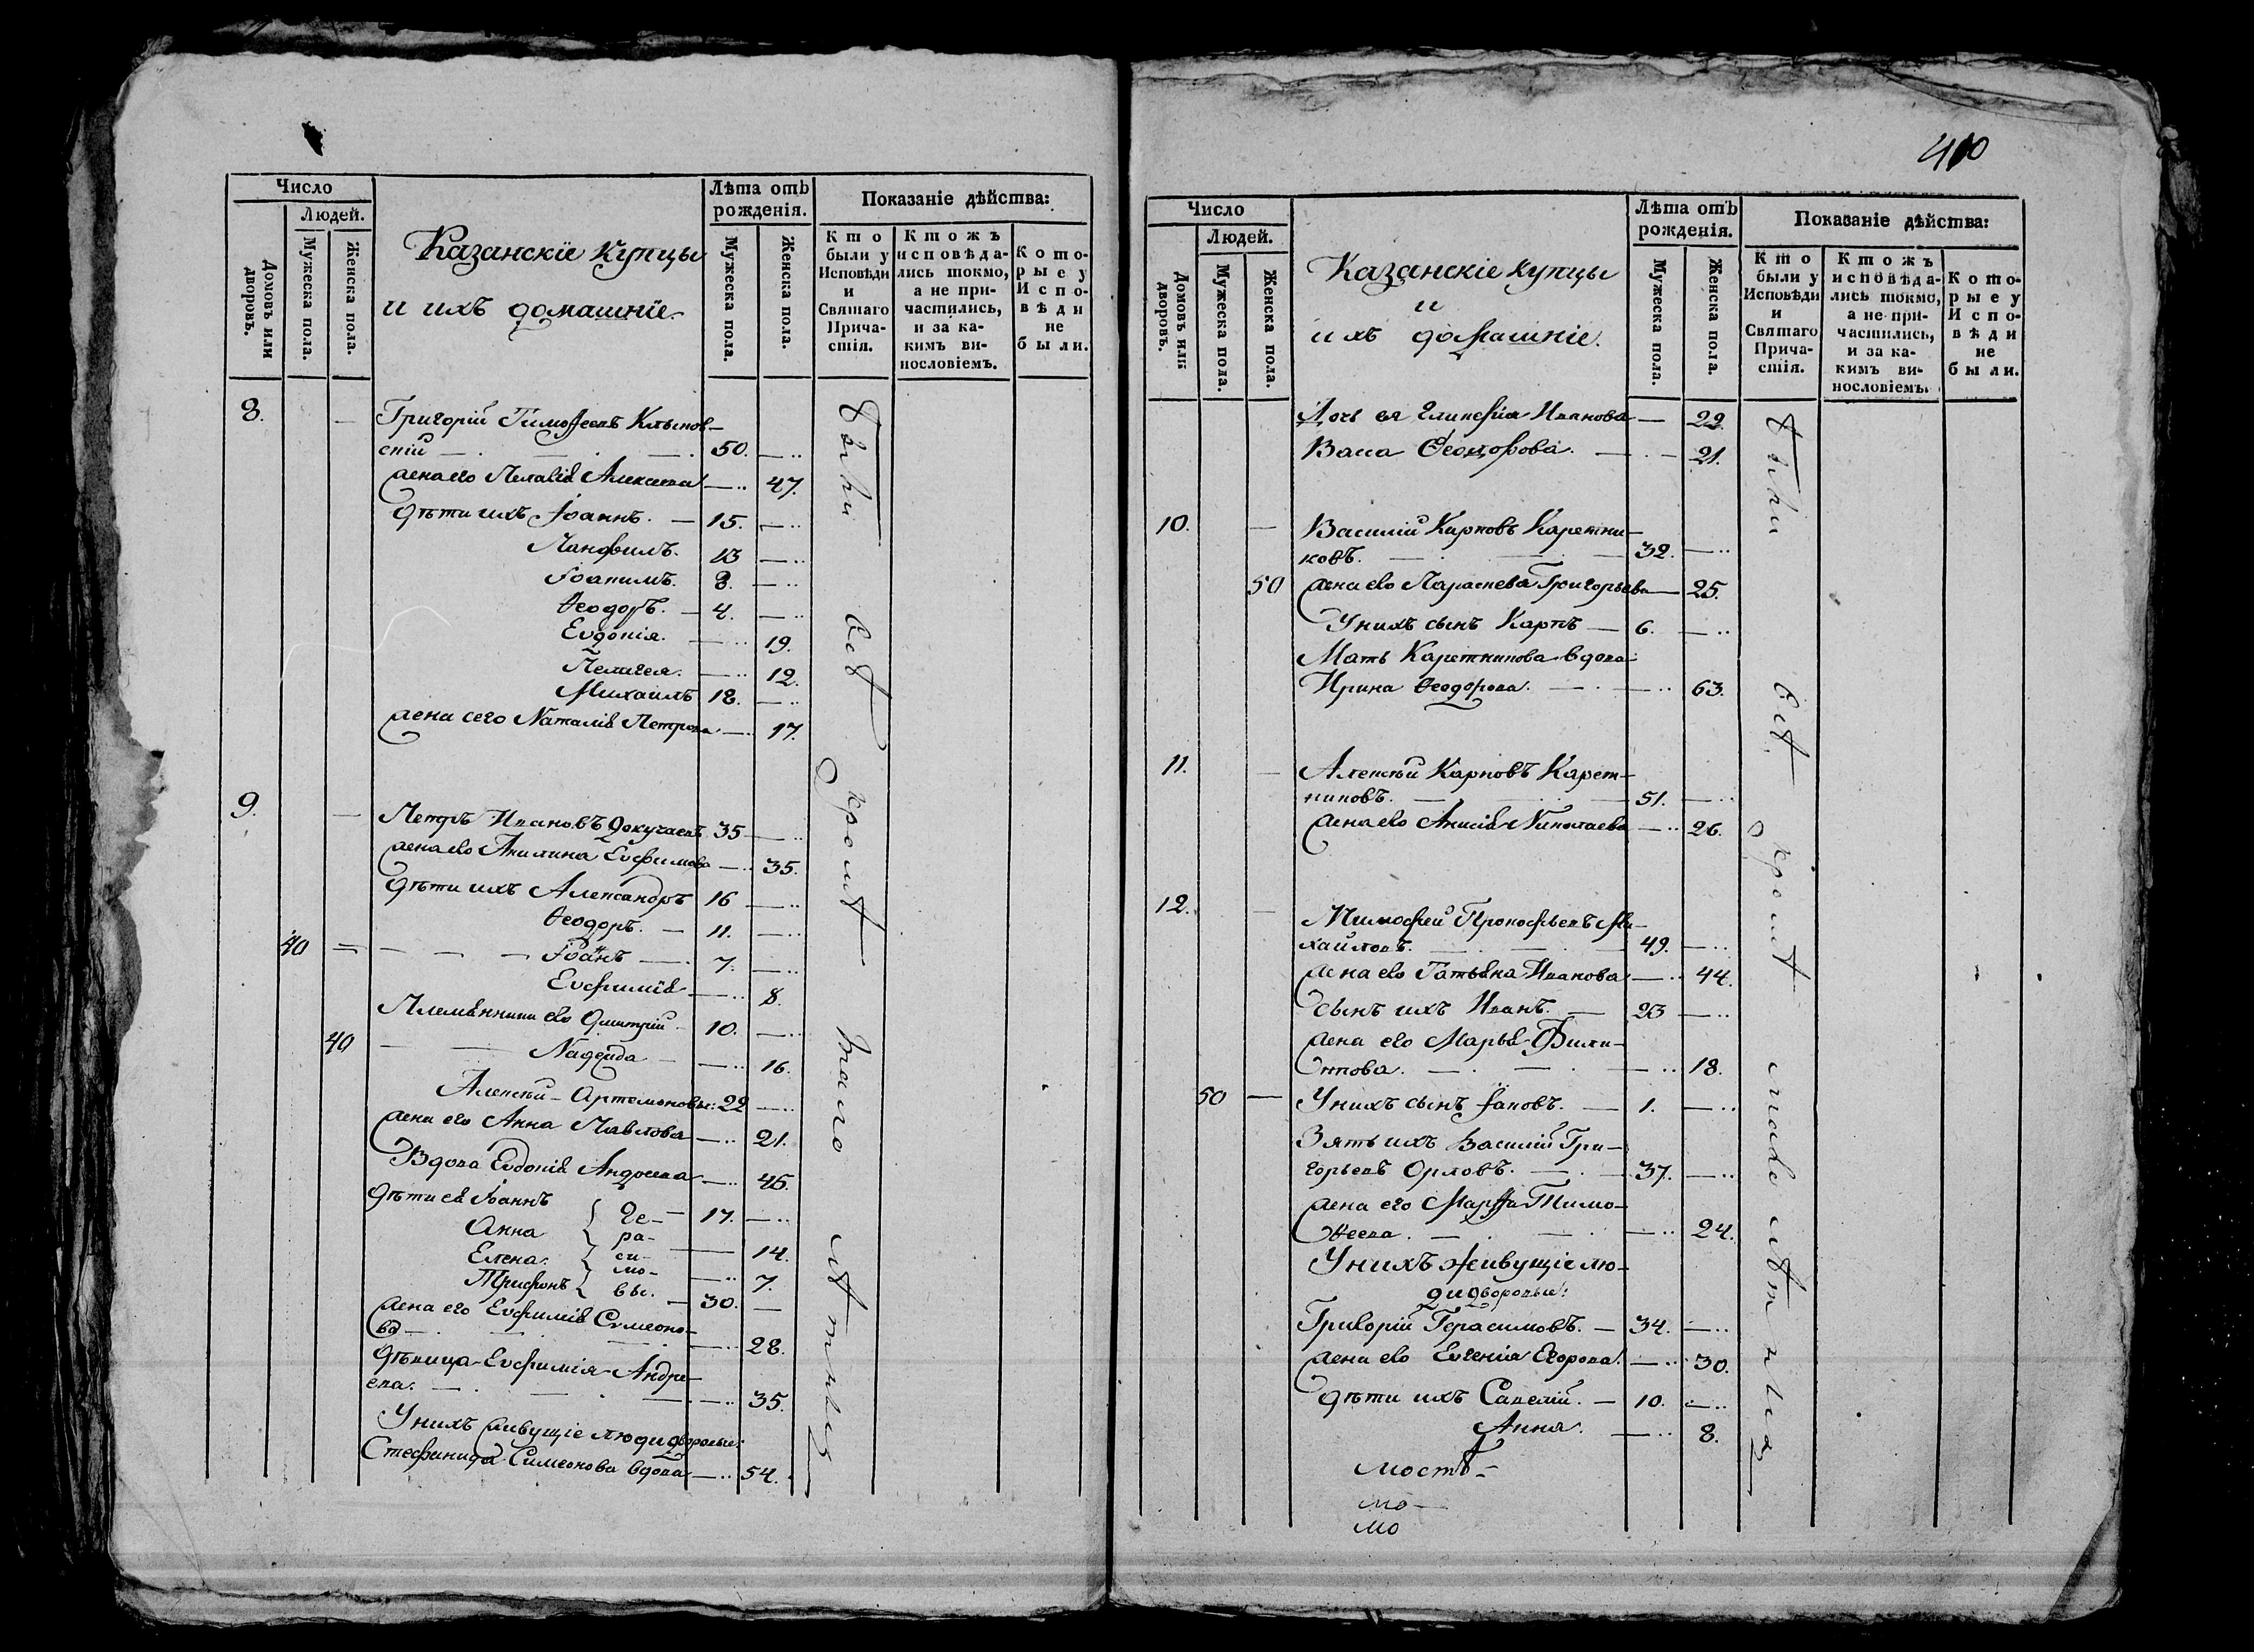 Число
Людей.
Домовъ или дворовъ.
Мужеска пола.
Женска пола.
Казанскіе купцы
и ихъ домашніе.
Лѣта отъ
рожденія.
Мужеска пола.
Женска пола.
Показаніе дѣйства:
Кто
были у
Исповѣди
и
Святаго
Прича-
стія.
Ктожъ
исповѣда-
лись токмо,
а не при-
частились,
и за ка-
кимъ ви-
нословіемъ.
Кото-
рые у
Испо-
вѣди
не
были.
8. Григорій Тимоѳеевъ Клыков-
скій 50.
жена его Пелагія Алексеева 47.
дѣти ихъ Іоаннъ. 15.
Панфилъ. 13
Іоакимъ. 8.
Ѳеодоръ. 4.
Евдокія. 19.
Пелагея. 12.
Михаилъ 18.
жена сего Наталія Петрова 17.
9. Петръ Ивановъ Докучаевъ 35
жена его Акилина Евфимова 35.
дѣти ихъ Александръ 16
Ѳеодоръ. 11.
40 Іоанъ 7.
Евфимія 8.
Племянники его Дмитрій 10.
40 Надежда 16.
Алексѣй Артемоновы: 22
жена его Анна Павлова 21.
Вдова Евдокія Андреева 45.
дѣти ея Іоаннъ Ге- 17.
Анна ра- 14.
Елена. си- 7.
Трифонъ мо- вы. 30.
жена его Евфимія Симеоно-
ва 28.
Дѣвица Евфимія Андре-
ева. 35.
У нихъ живущіе люди дворовые:
Стефанида Симеонова вдова 54.
были всѣ кромѣ мало лѣтныхъ
410
Число
Людей.
Домовъ или дворовъ.
Мужеска пола.
Женска пола.
Казанскіе купцы
и
ихъ домашніе.
Лѣта отъ
рожденія.
Мужеска пола.
Женска пола.
Показаніе дѣйства:
Кто
были у
Исповѣди
и
Святаго
Прича-
стія.
Ктожъ
исповѣда-
лись токмо,
а не при-
частились,
и за ка-
кимъ ви-
нословіемъ.
Кото-
рые у
Испо-
вѣди
не
были.
Дочь ея Гликерія Иванова 22.
Васса Ѳеодорова. 21.
10. Василій Карповъ Каретни-
ковъ. 32.
50 жена его Параскева Григорьева 25.
У нихъ сынъ Карпъ 6.
Мать Каретникова вдова
Ирина Ѳеодорова. 63.
11. Алексѣй Карповъ Карет-
никовъ. 51.
жена его Анисія Николаева 26.
12. Тимофей Прокофьевъ Ми-
хайловъ. 49.
жена его Татьяна Иванова 44.
сынъ ихъ Иванъ. 23
жена его Марья Фили-
пова. 18.
50 У нихъ сынъ Іаковъ. 1.
Зять ихъ Василій Гри-
горьевъ Орловъ. 37.
жена его Марѳа Тимо-
ѳеева. 24.
У нихъ живущіе лю-
ди дворовые:
Григорій Герасимовъ. 34.
жена его Евгенія Егорова. 30.
дѣти ихъ Савелій. 10.
Анна. 8.
мостѣ
мо
мо
были всѣ кромѣ мало лѣтныхъ